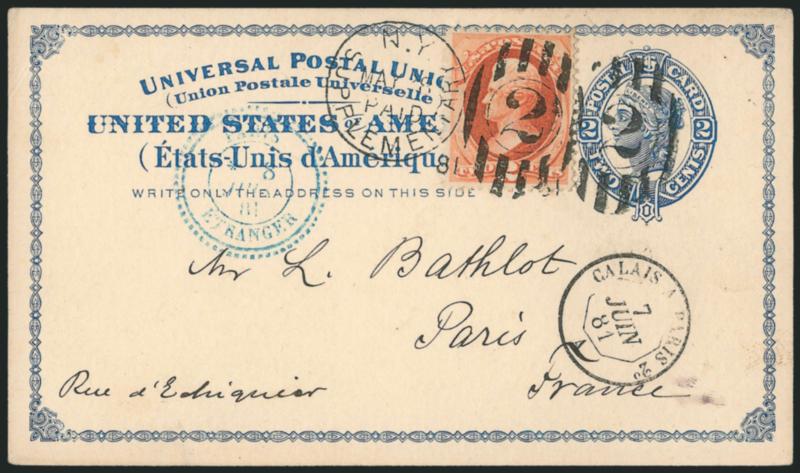 UNIVERSAL POSTAL UNIO
(Union Postale Universelle
UNITED STATES OF AME
(États-Unis d'Amériqu
WRITE ONLY THE ADDRESS ON THIS SIDE
N.Y.
SUPPLEMENTARY
PAID
81
2
2
POSTAL CARD
2 2
TWO CENTS
81
ETRANGER
CALAIS A PARIS 2º
7
JUIN
81
Mr L. Bathlot
Paris
Rue d'Echiquier
France